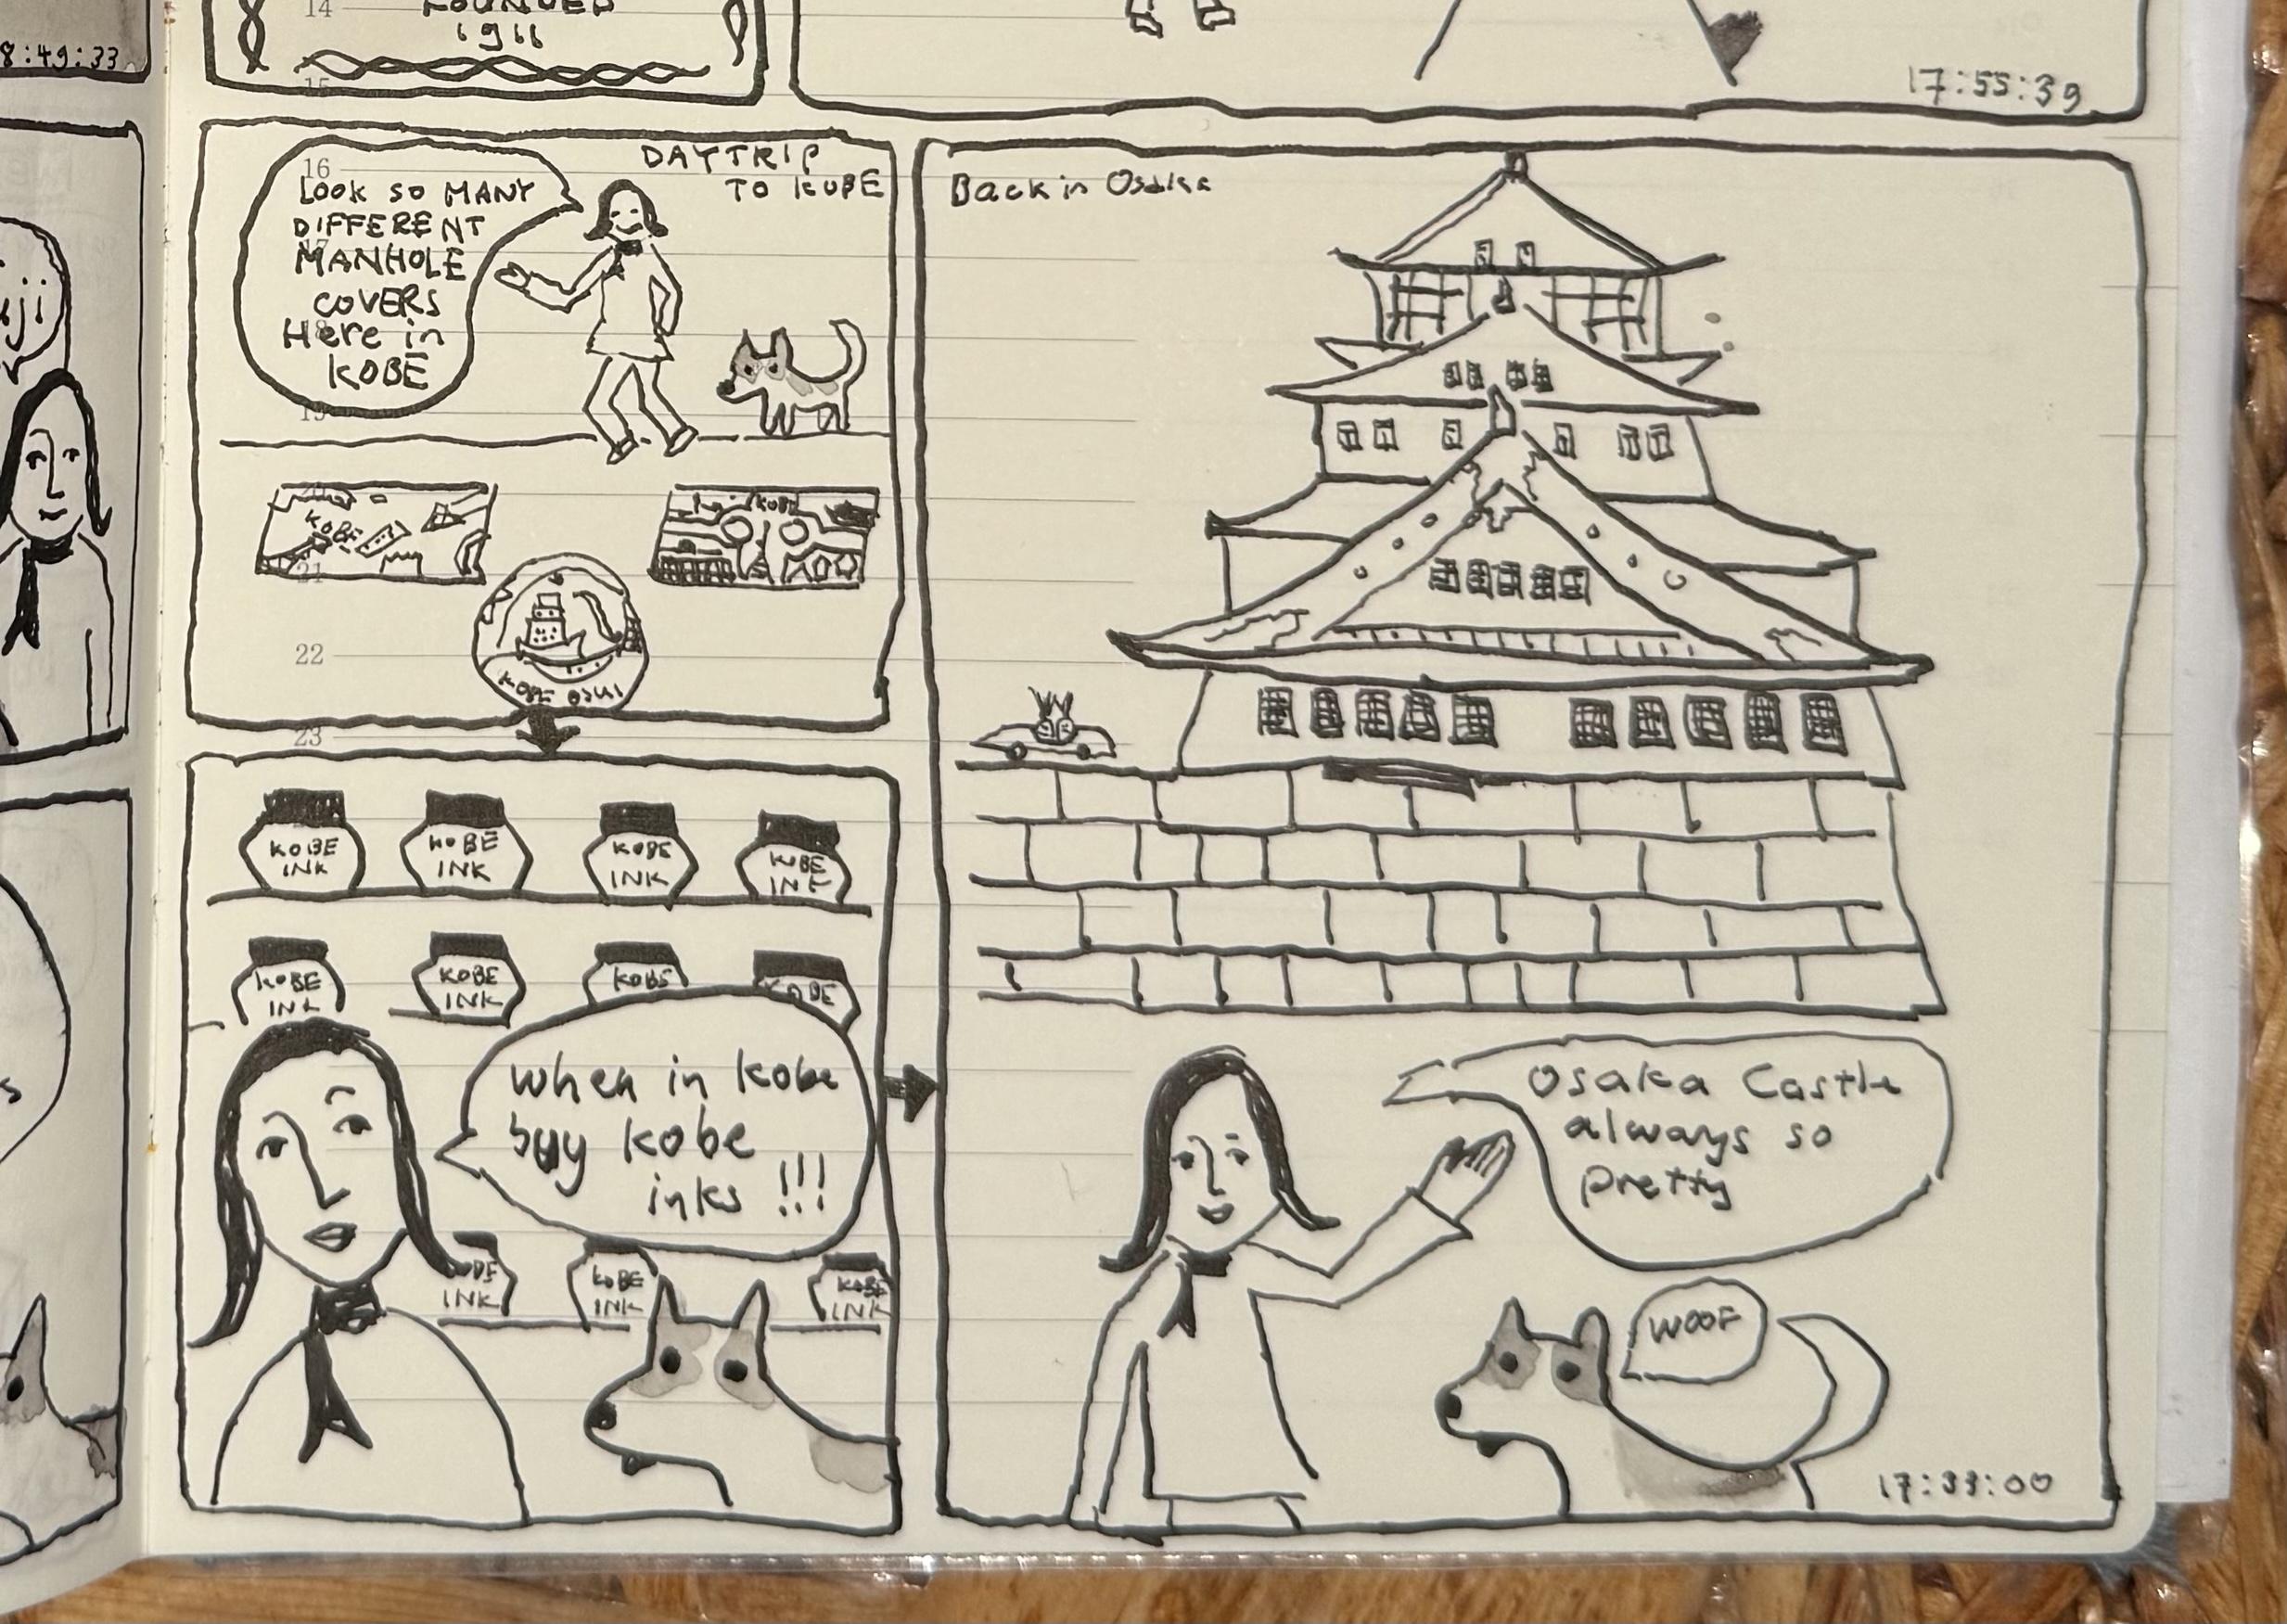 8:49:33
14
FOUNDED
1911
15
17:55:39
uji
16
LOOK SO MANY
DIFFERENT
17
MANHOLE
COVERS
18
Here in
KOBE
19
DAYTRIP
TO KOBE
20
KOBE
KOBE
21
KOBE OSUI
22
23
KOBE
INK
KOBE
INK
KOBE
INK
KOBE
INK
KOBE
INK
KOBE
INK
KOBE
KOBE
when in kobe
buy kobe
inks !!!
OBE
INK
KOBE
INK
KOBE
INK
Back in Osaka
Osaka Castle
always so
pretty
WOOF
17:33:00